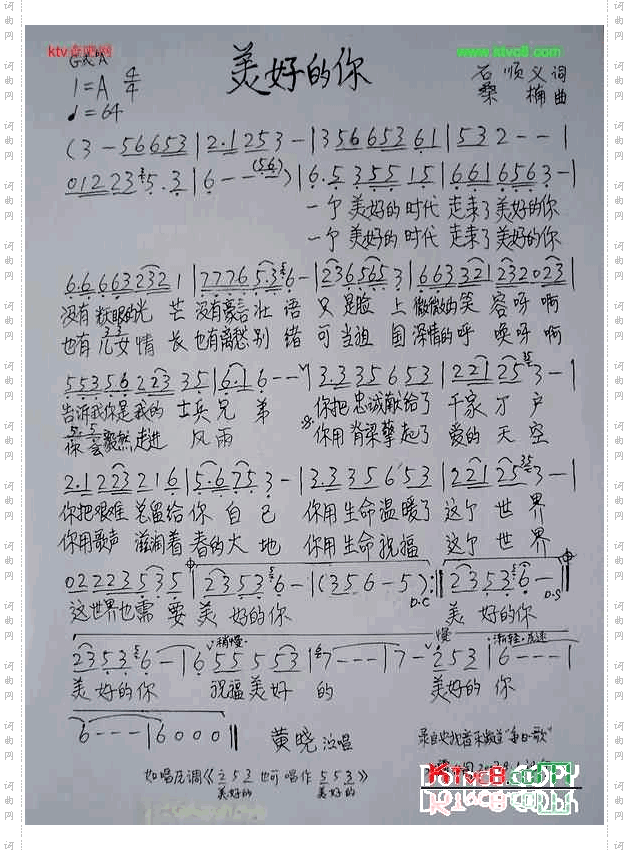 美好的你
www.ktvc8.com
G或A
1=A 4/4
♩=64
石顺义 词
桑楠 曲
(3 - 5 6 6 5 3 | 2·1 2 5 3 - | 3 5 6 6 5 3 6 1 | 5 3 2 - - |
0 1 2 2 2 3 5·3 | 6 - - (5 6) | 6·5 3 5 5 1 5 | 6 6 1 6 5 6 3 - |
一个美好的时代 走来了美好的你
一个美好的时代 走来了美好的你
6·6 6 6 3 2 3 2 1 | 7 7 7 6 5·3 6 - | 2 3 6 5 6 5 3 | 6 6 3 3 2 1 2 3 2 0 2 3 |
没有耀眼的光 芒 没有豪言壮 语 只 是脸 上 微微的笑 容呀 啊
也有儿女情 长 也有离愁别 绪 可 当祖 国 深情的呼 唤呀 啊
5 5 3 5·6 2 2 3 3 5 | 6·1 6 - - | 3·3 3 5 6 5 3 | 2 2 1 2 5 3 - |
告诉我你是我的 士兵兄 弟 你把忠诚献给了 千家万 户
你会毅然走进 风雨 你用脊梁擎起了 爱的天 空
2·1 2 2 3 2 1 6 | 5·6 7 5 3 - | 3·3 3 5 6 5 3 | 2 2 1 2 5 3 - |
你把艰难 总留给 你 自 己 你用生命温暖了 这个 世 界
你用歌声 滋润着 春的大 地 你用生命祝福 这个 世 界
0 2 2 2 3 5 3 5 | 2 3 5 3 6 - | (3 5 6 - 5) :| 2 3 5 3 6 - ||
D.C D.S
这世界也需 要 美 好的你 美 好的你
稍慢 慢 渐轻·减速
2 3 5 3 6 - | 6 5 5 5 5 3 | 7 - - - | 7 - 2 5 3 | 6 - - - |
美 好的 你 祝福美好 的 美好的 你
6 - - - | 6 0 0 0 ||
黄晓 演唱
如唱A调《2 5 3 也可唱作 5 5 3》
美好的 美好的
KTvc8 COPY
词曲网